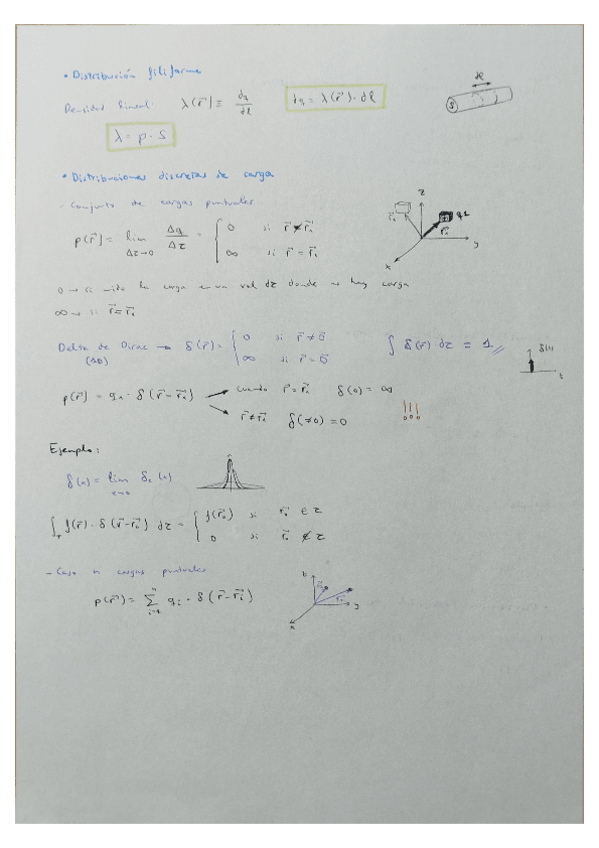 • Distribución filiforme
Densidad lineal: λ(r⃗) ≡ dq/dl   dq = λ(r⃗) · dl   dl
λ = ρ · S   S
• Distribuciones discretas de carga
- Conjunto de cargas puntuales
ρ(r⃗) = lim Δτ→0 Δq/Δτ = { 0 si r⃗ ≠ r⃗₁
∞ si r⃗ = r⃗₁
z q1 r⃗₁ y x
0 → si mido la carga en un vol dτ donde no hay carga
∞ → si r⃗ = r⃗₁
Delta de Dirac → δ(r⃗) = { 0 si r⃗ ≠ 0⃗   ∫ δ(r⃗) dτ = 1
(ΔD) ∞ si r⃗ = 0⃗
ρ(r⃗) = q₁ · δ(r⃗ - r⃗₁) → cuando r⃗ = r⃗₁ δ(0) = ∞
r⃗ ≠ r⃗₁ δ(≠0) = 0 !!!
Ejemplo:
δ(x) = lim δ (x)
∫τ f(r⃗) · δ(r⃗ - r⃗₀) dτ = { f(r⃗₀) si r⃗₀ ∈ τ
0 si r⃗₀ ∉ τ
- Caso n cargas puntuales
ρ(r⃗) = Σ i=1 n qi · δ(r⃗ - r⃗i)
y x